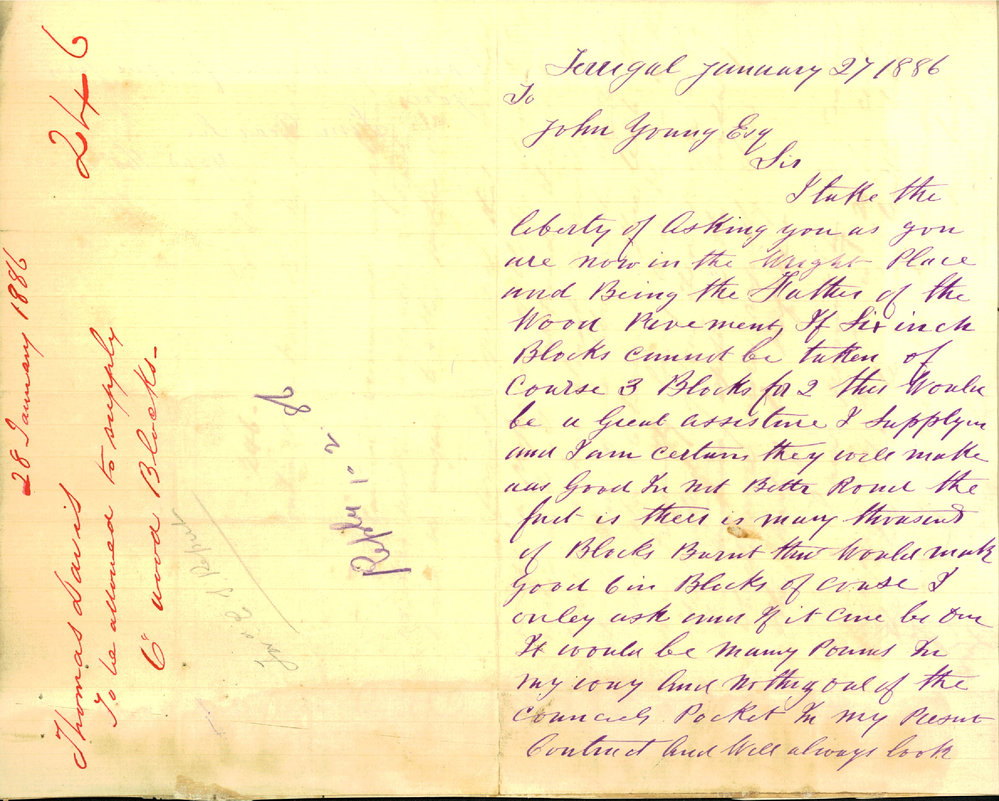 246
28 January 1886
Thomas Davis
To be allowed to supply
6" wood Blocks -
Terrigal January 27 1886
To
John Young Esq
Sir
I take the
liberty of Asking you as you
are now in the Wright Place
and Being the Father of the
Wood Pavement, If Six inch
Blocks cannot be taken of
Course 3 Blocks for 2 this Would
be a Great assistine I Supply
and I am certain they will make
aas Good In not Bettr Roud the
fact is thers is many thousend
of Blocks Burnt that Would mak
good 6 in Blocks of couse I
onley ask and If it can be Don
It would be Many Pouns In
my way And nothing out of the
Councels Pocket In my Present
Contract And Will always look